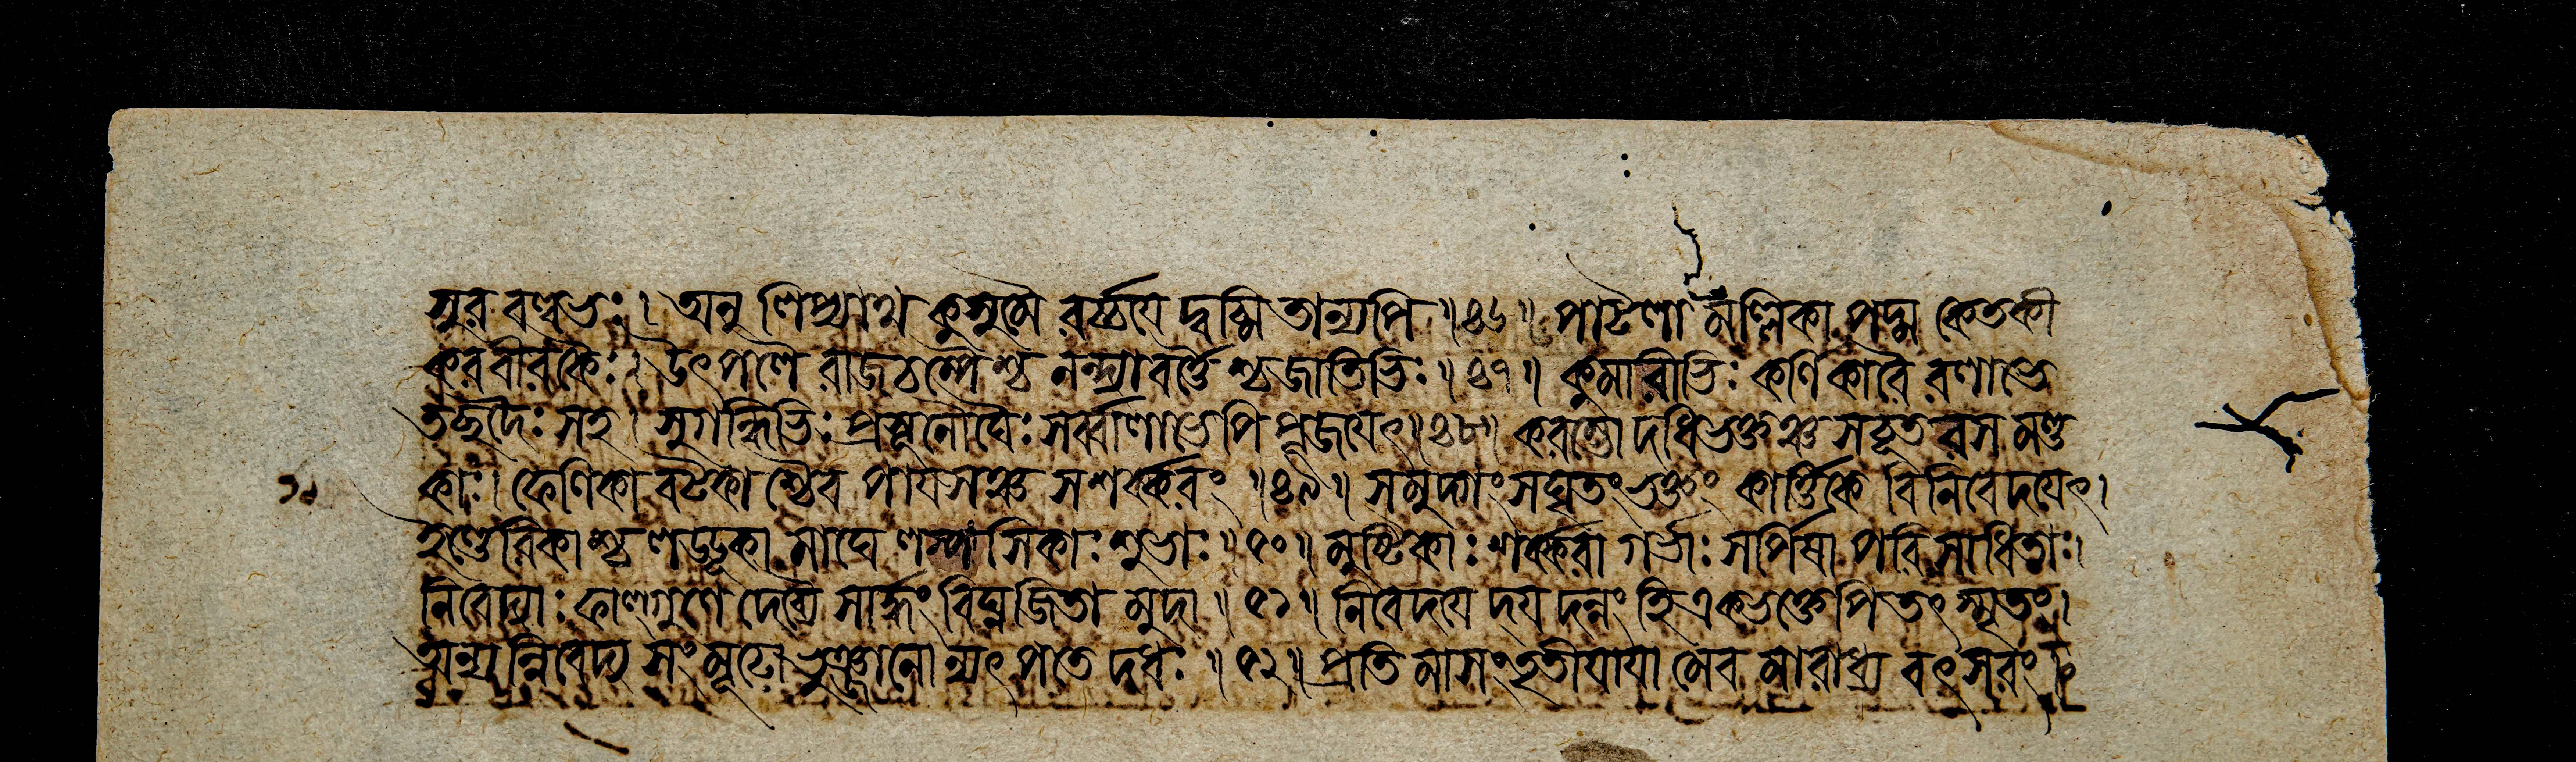 সুরবল্লভৈঃ। অনুলিপ্যাথ কুসুমৈ রর্চ্চযেদ্বচ্মি তান্যপি ॥৪৬॥ পাটলা মল্লিকা পদ্ম কেতকী
করবীরকৈঃ। উৎপলৈ রাজচম্পৈশ্চ নন্দ্যাবর্ত্তৈশ্চ জাতিভিঃ ॥৪৭॥ কুমারীভিঃ কর্ণিকারৈ রলাভে
তচ্ছদৈঃ সহ। সুগন্ধিভিঃ প্রসূনৌঘৈঃ সর্ব্বালাভেপি পূজযেৎ ॥৪৮॥ করম্ভো দধিভক্তঞ্চ সচূতরসমণ্ড
কাঃ। ফেণিকা বটকাশ্চৈব পাযসঞ্চ সশর্ক্করং ॥৪৯॥ সমুদ্গং সঘৃতং ভক্তং কার্ত্তিকে বিনিবেদযেৎ।
ইণ্ডেরিকাশ্চ লড্ডূকা মাঘে লম্পসিকাঃ শুভাঃ ॥৫০॥ মুষ্টিকাঃ শর্ক্করাগর্ভাঃ সর্পিষা পরিসাধিতাঃ।
নিবেদ্যাঃ ফাল্গুণে দেব্যৈ সার্দ্ধং বিঘ্নজিতা মুদা ॥৫১॥ নিবেদযে দযদন্নং হি একভক্তেপি তৎ স্মৃতং।
অন্যন্নিবেদ্য সংমূঢো ভুঞ্জানোন্যৎ পতেদধঃ ॥৫২॥ প্রতিমাসং তৃতীযাযামেবমারাধ্য বৎসরং।